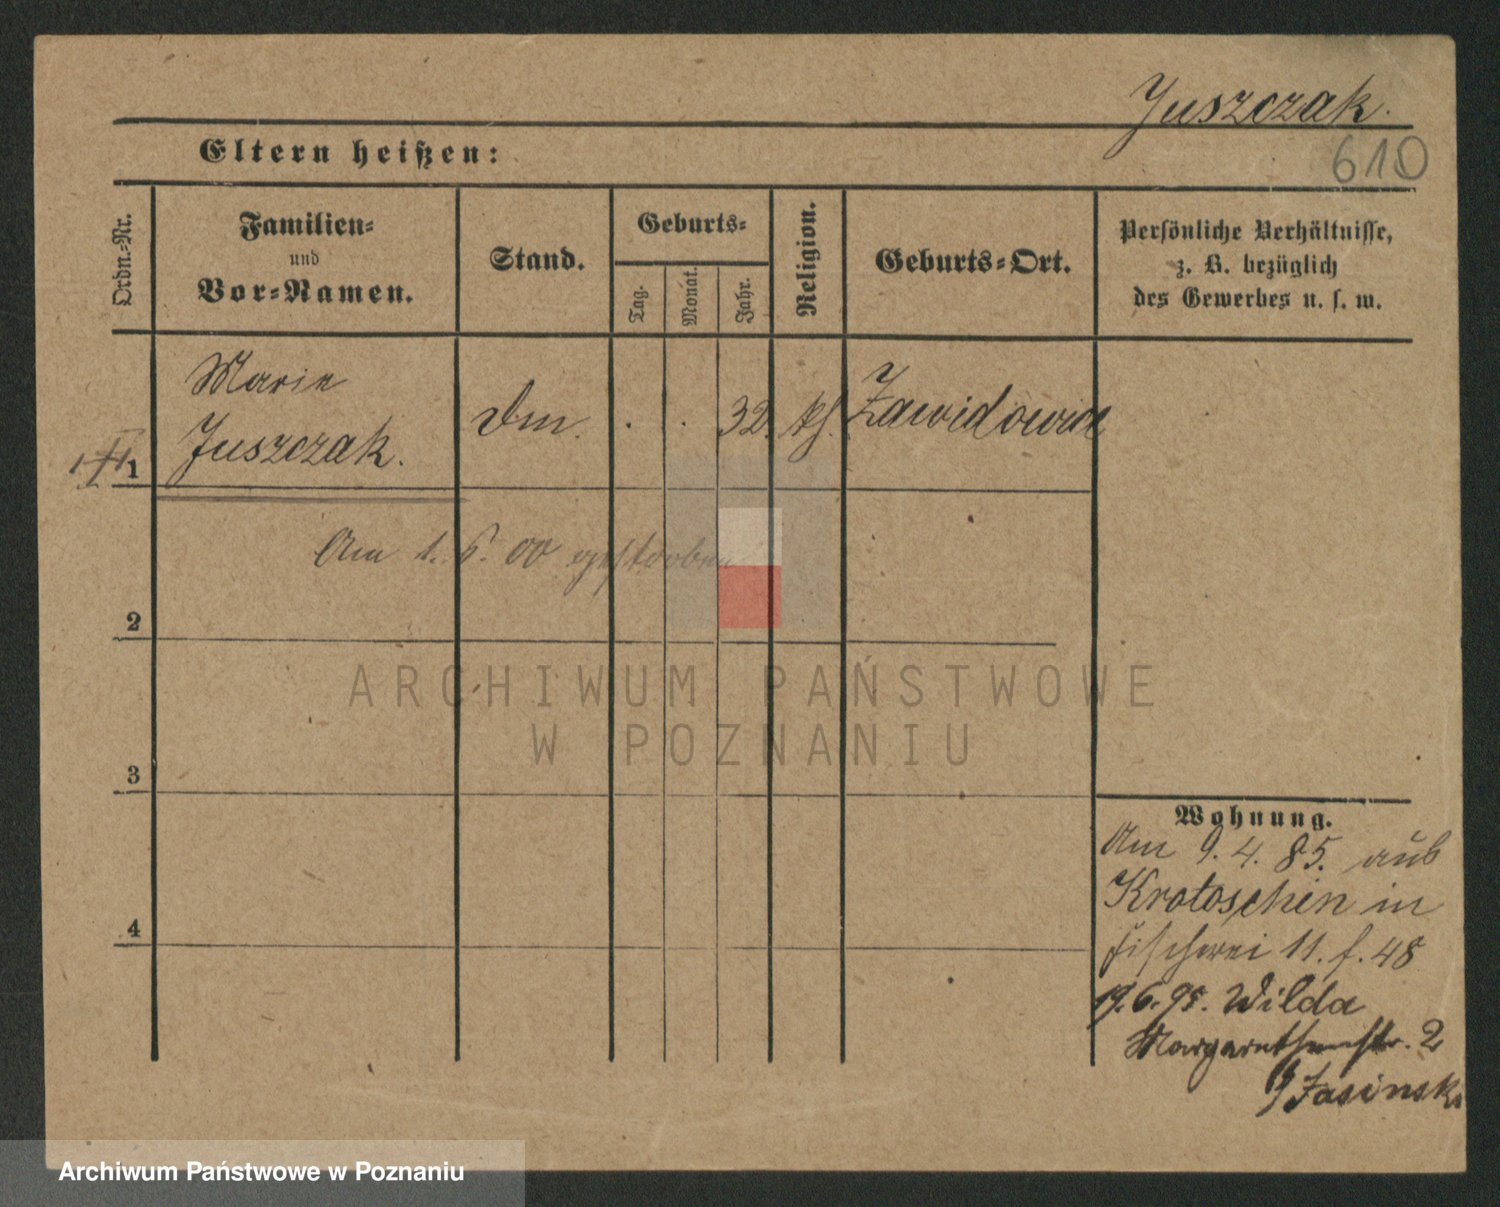 Juszczak.
610
Eltern heißen:
Ordn.-Nr.
Familien-
und
Vor-Namen.
Stand.
Geburts-
Tag.
Monat.
Jahr.
Religion.
Geburts-Ort.
Persönliche Verhältnisse,
z. B. bezüglich
des Gewerbes u. s. w.
1
Marie
Juszczak.
32.
kh.
Zawidowice
Am 1. 6. 00 gestorben
2
3
4
ARCHIWUM PAŃSTWOWE
W POZNANIU
Wohnung.
Am 9. 4. 85. aus
Krotoschin in
Fischerei 11. f. 48
19. 6. 95. Wilda
Margarethenstr. 2
b/ Jasinski
Archiwum Państwowe w Poznaniu